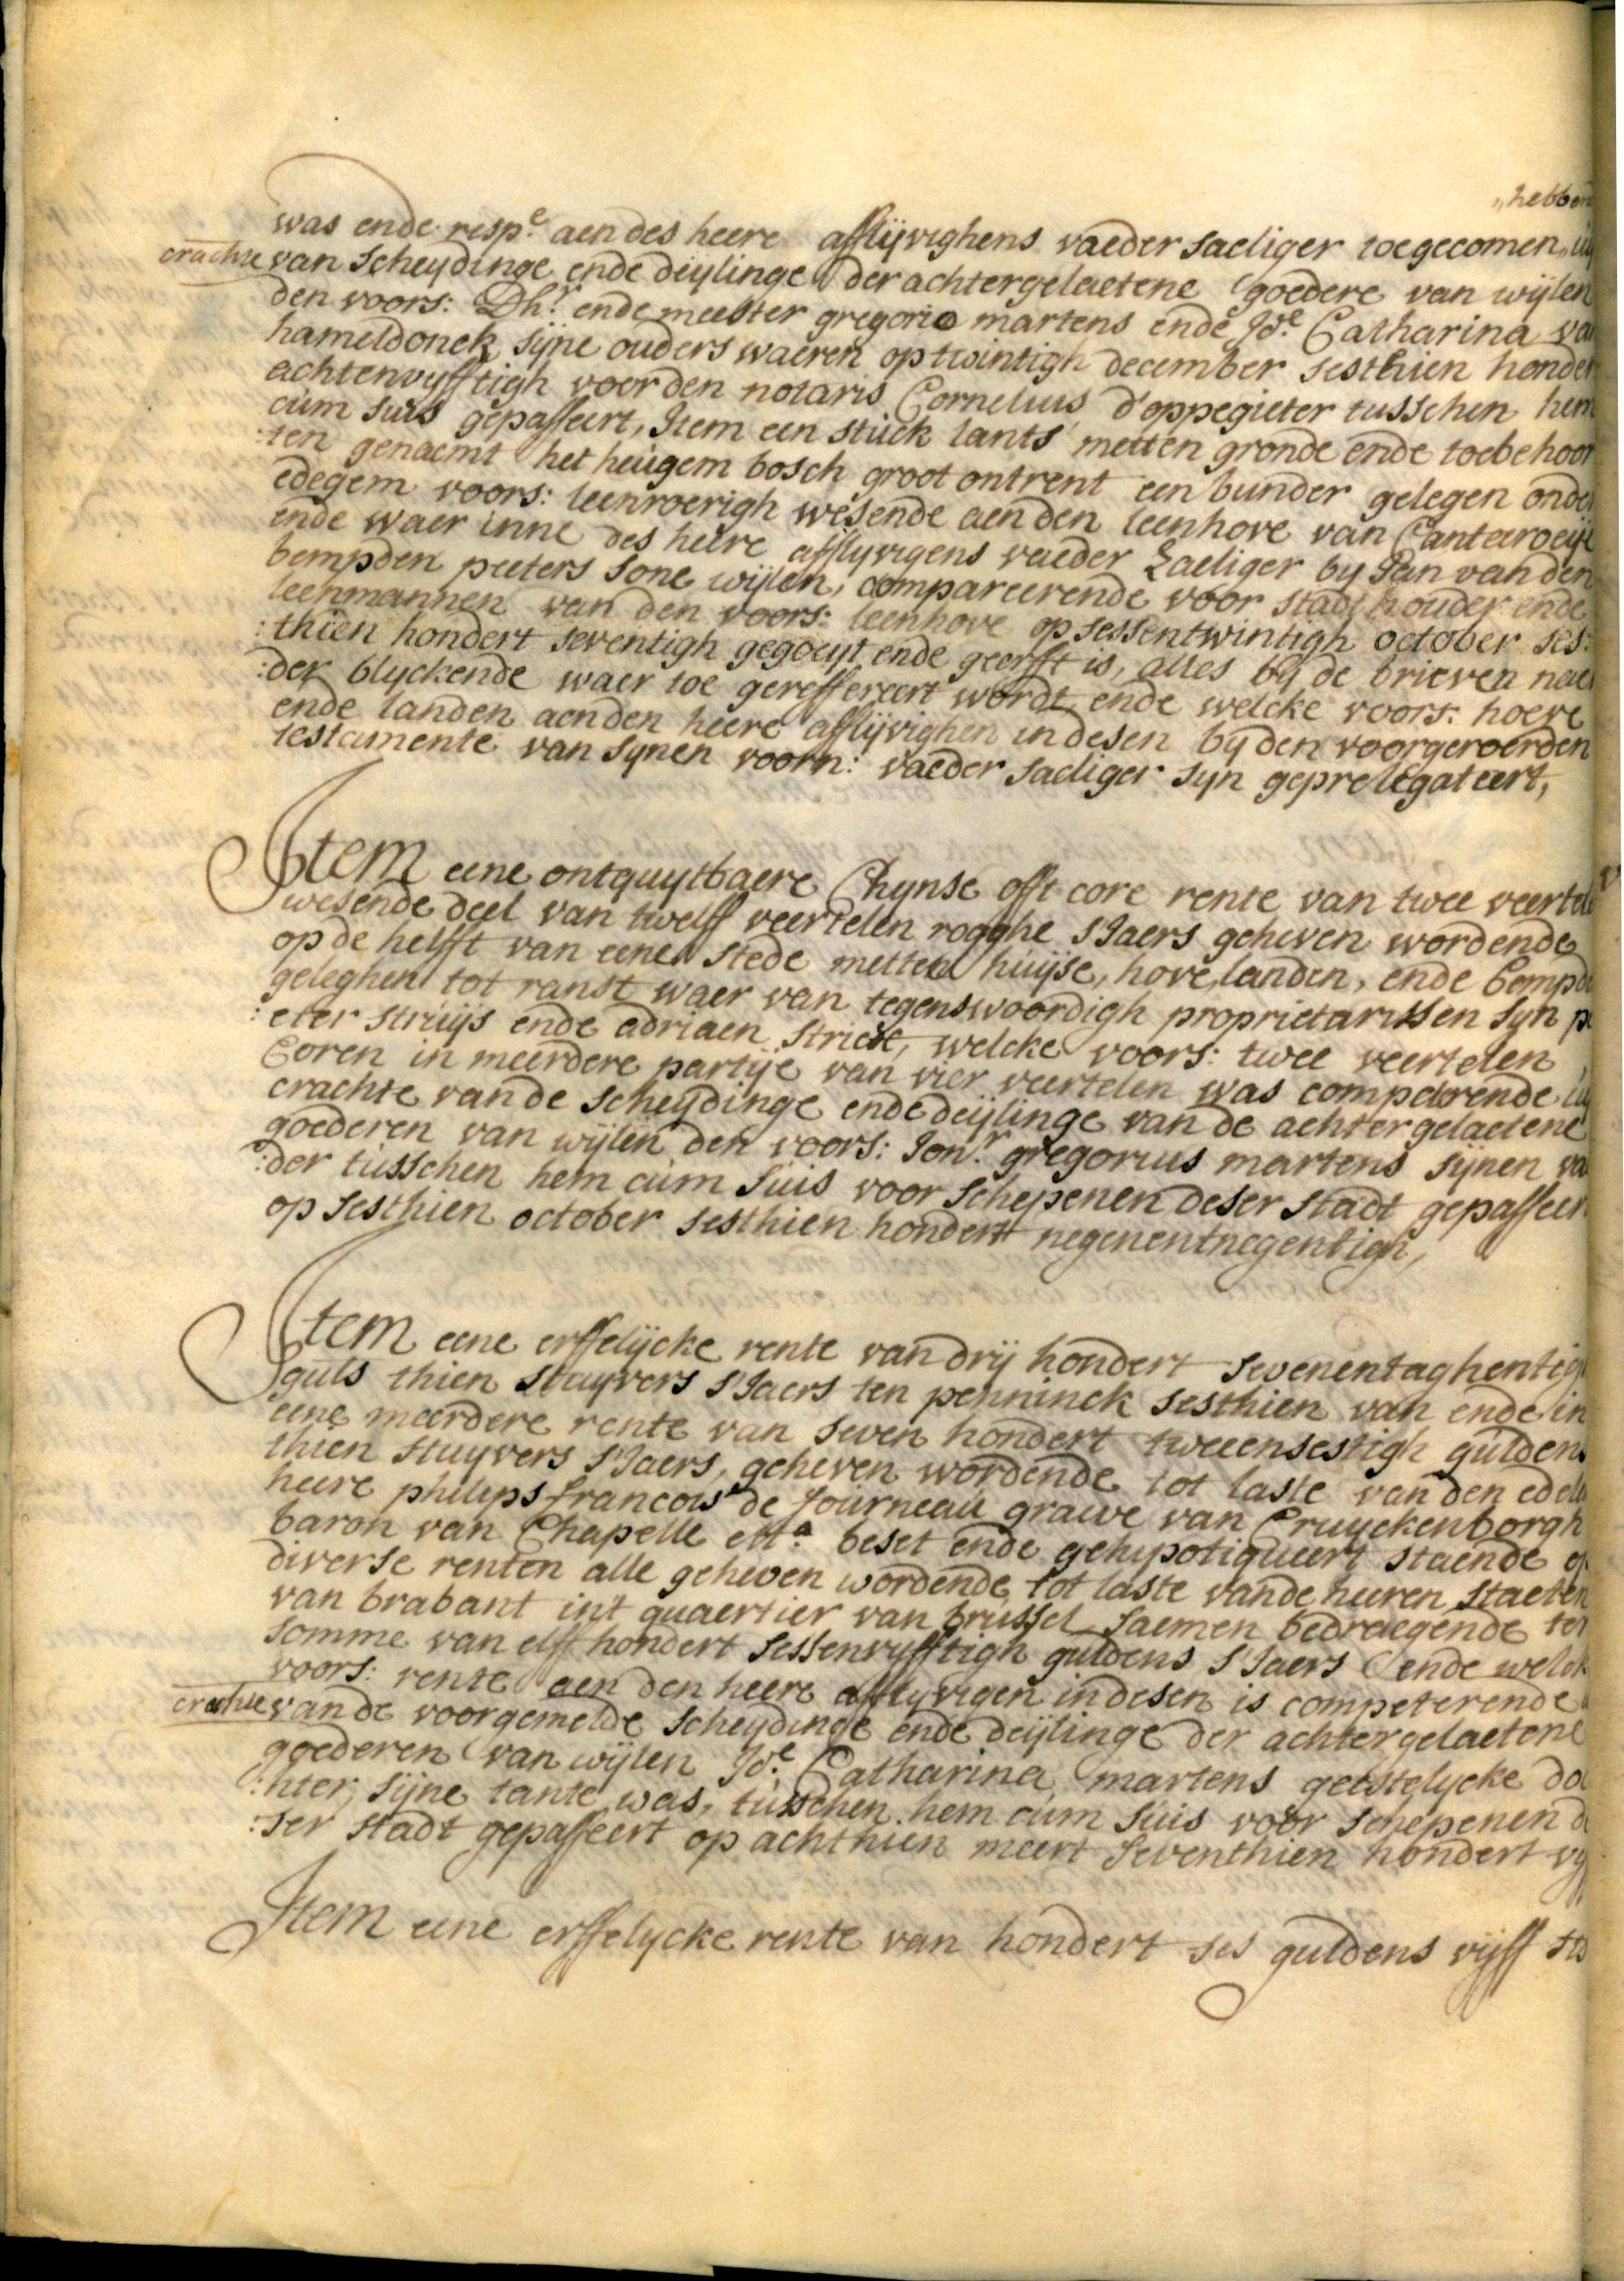 "hebben
was ende respe. aen des heere afflijvighens vaeder saeliger toegecomen,, uijt
crachte van scheijdinge ende deijlinge der achtergelaetene goedere van wijlen
den voors: Dhr. ende meester gregorio martens ende Jde. Catharina van
hameldonck sijne ouders waeren op twintigh december sesthien hondert
achtenvyfftigh voor den notaris Cornelius d'oppegieter tusschen hem
cum suis gepasseert, Item een stuck lants metten gronde ende toebehoor
:ten genaemt het heugem bosch groot ontrent een bunder gelegen onder
edegem voors: leenroerigh wesende aen den leenhove van Cantecroije
ende waer inne des heere afflyvigens vaeder Zaeliger by Jan van den
bempden peeters sone wijlen, compareerende voor stadthouder ende
leenmannen van den voors: leenhove op sessentwintigh october ses:
:thien hondert seventigh gegoeyt ende geerfft is, alles by de brieven nae
:der blyckende waer toe gereffereert wordt, ende welcke voors: hoeve
ende landen aen den heere afflijvighen in desen by den voorgeroerden
testamente van synen voorn: vaeder saeliger syn geprelegateert,
Item eene ontquytbaere Chynse offt core rente van twee veertelen
wesende deel van twelff veertelen rogghe s'Jaers geheven wordende
op de helfft van eene stede metten huijse, hove, landen, ende bempden
geleghen tot ranst waer van tegenswoordigh proprietarissen syn pe
:eter struijs ende adriaen strick, welcke voors: twee veertelen
Coren in meerdere partije van vier veertelen was competerende uijt
crachte van de scheijdinge ende deijlinge van de achtergelaetene
goederen van wijlen den voors: Jonr. gregorius martens sijnen va
:der tusschen hem cum suis voor schepenen deser stadt gepasseert
op sesthien october sesthien hondert negenentnegentigh,
Item eene erffelijcke rente van drij hondert sevenentaghentigh
guls thien stuyvers s'Jaers ten penninck sesthien van ende in
eene meerdere rente van seven hondert tweeensestigh guldens
thien stuyvers s'Jaers, geheven wordende tot laste van den edelen
heere philips francois de Journeau grawe van Cruyckenborgh
baron van Chapelle etta. beset ende gehypotiqueert staende op
diverse renten alle geheven wordende tot laste van de heeren staeten
van brabant int quaertier van brussel saemen bedraegende ter
somme van elff hondert sessenvyfftigh guldens s'Jaers ende welcke
voors: rente aen den heere afflyvigen in desen is competerende uijt
crachte van de voorgemelde scheydinge ende deijlinge der achtergelaetene
goederen van wijlen Jde. Catharina martens geestelycke doc
:hter, sijne tante was, tusschen hem cum suis voor schepenen de
:ser stadt gepasseert op achthien meert seventhien hondert vyff
Item eene erffelycke rente van hondert ses guldens vijff sts